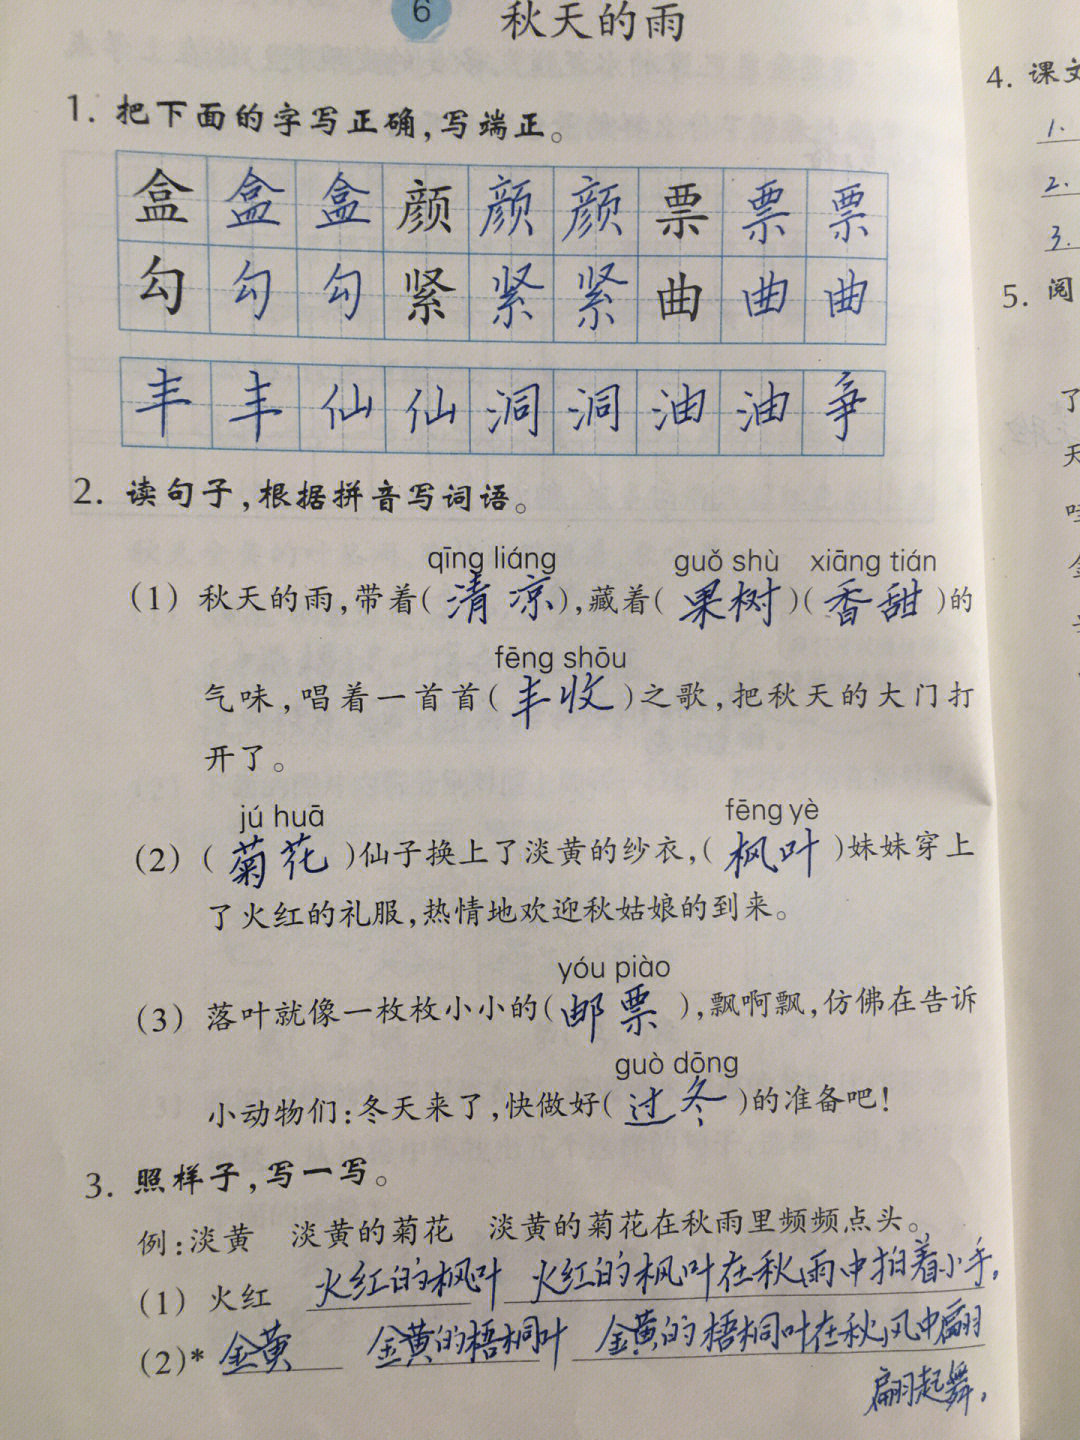 6 秋天的雨
1. 把下面的字写正确，写端正。
盒 盒 盒 颜 颜 颜 票 票 票
勾 勾 勾 紧 紧 紧 曲 曲 曲
丰 丰 仙 仙 洞 洞 油 油 争
2. 读句子，根据拼音写词语。
qīng liáng guǒ shù xiāng tián
（1）秋天的雨，带着（清凉），藏着（果树）（香甜）的
fēng shōu
气味，唱着一首首（丰收）之歌，把秋天的大门打
开了。
jú huā fēng yè
（2）（菊花）仙子换上了淡黄的纱衣，（枫叶）妹妹穿上
了火红的礼服，热情地欢迎秋姑娘的到来。
yóu piào
（3）落叶就像一枚枚小小的（邮票），飘啊飘，仿佛在告诉
guò dōng
小动物们：冬天来了，快做好（过冬）的准备吧！
3. 照样子，写一写。
例：淡黄 淡黄的菊花 淡黄的菊花在秋雨里频频点头。
（1）火红 火红的枫叶 火红的枫叶在秋雨中拍着小手。
（2）* 金黄 金黄的梧桐叶 金黄的梧桐叶在秋风中翩
翩起舞。
4. 课文
1.
2.
3.
5. 阅
了
天